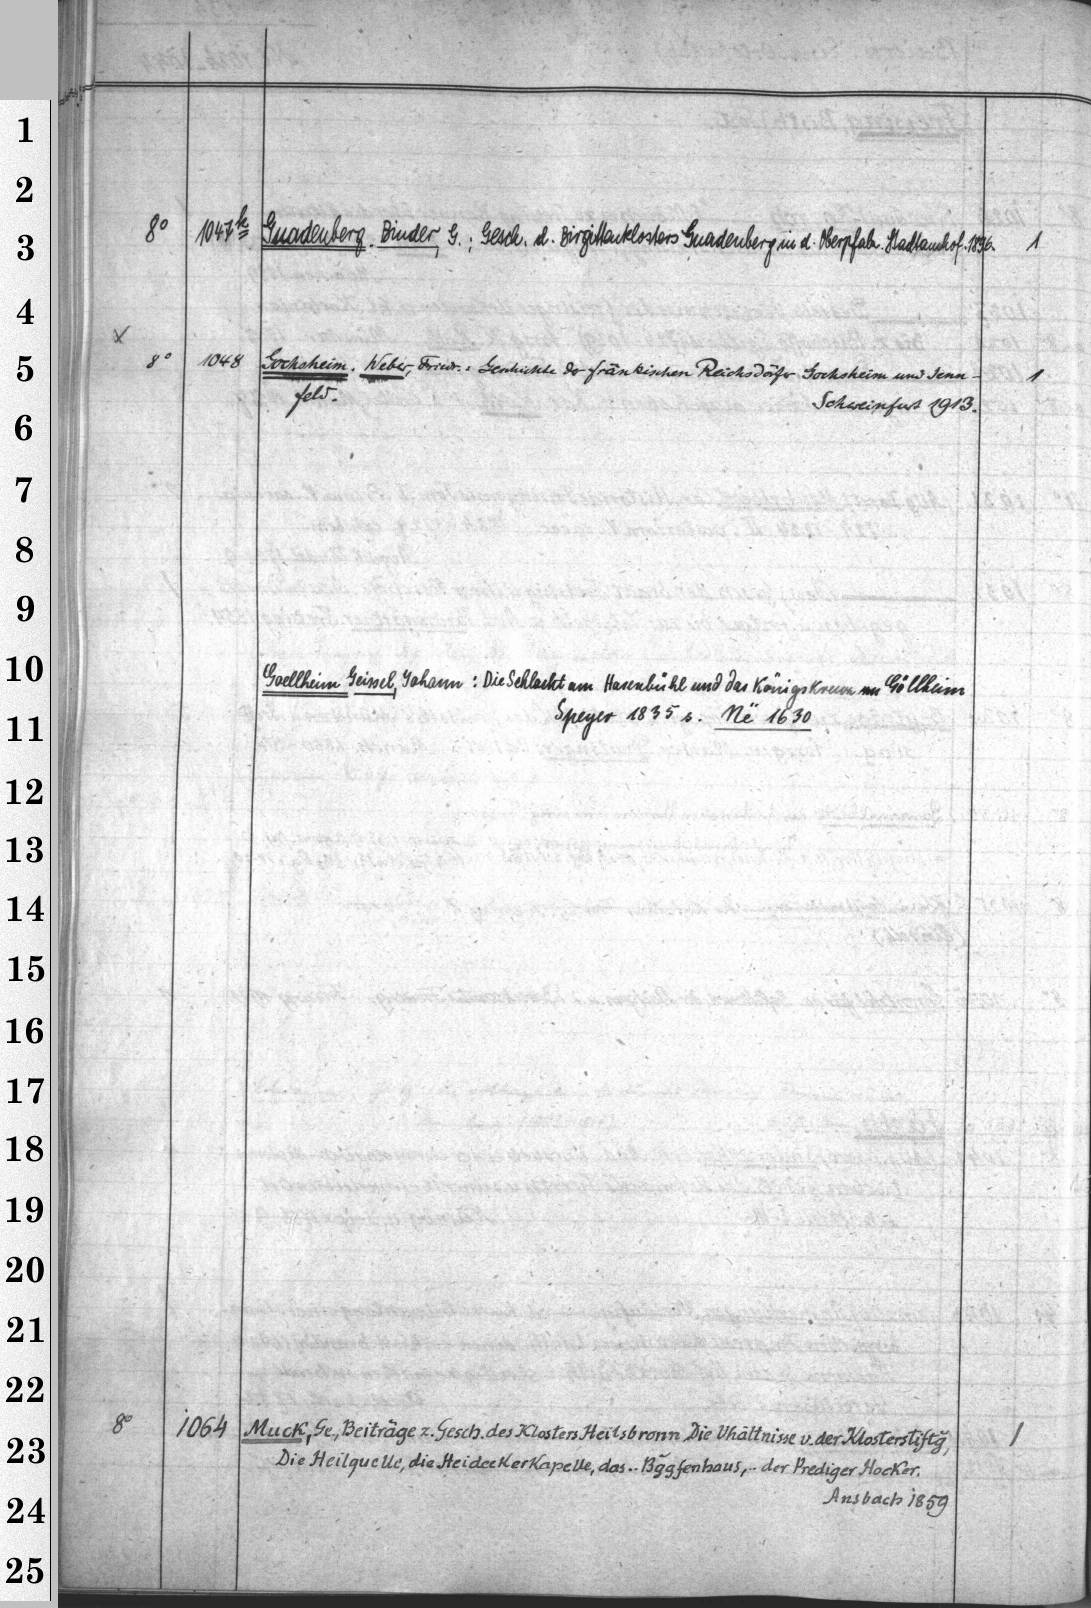 1
2
3
4
5
6
7
8
9
10
11
12
13
14
15
16
17
18
19
20
21
22
23
24
25
8° 1047k Gnadenberg. Binder, G.; Gesch. d. Birgittenklosters Gnadenberg in d. Oberpfalz. Stadtamhof. 1896. 1
8° 1048 Gochsheim. Weber, Friedr.: Geschichte der fränkischen Reichsdörfer Gochsheim und Senn- 1
feld. Schweinfurt 1913.
Goellheim Geissel, Johann: Die Schlacht am Hasenbühl und das Königskreuz zu Göllheim
Speyer 1835 s. Në 1630
8° 1064 Muck, Ge., Beiträge z. Gesch. des Klosters Heilsbronn Die Vhältnisse v. der Klosterstiftg, 1
Die Heilquelle, die Heideckerkapelle, das .. Bggfenhaus, .. der Prediger Hocker.
Ansbach 1859